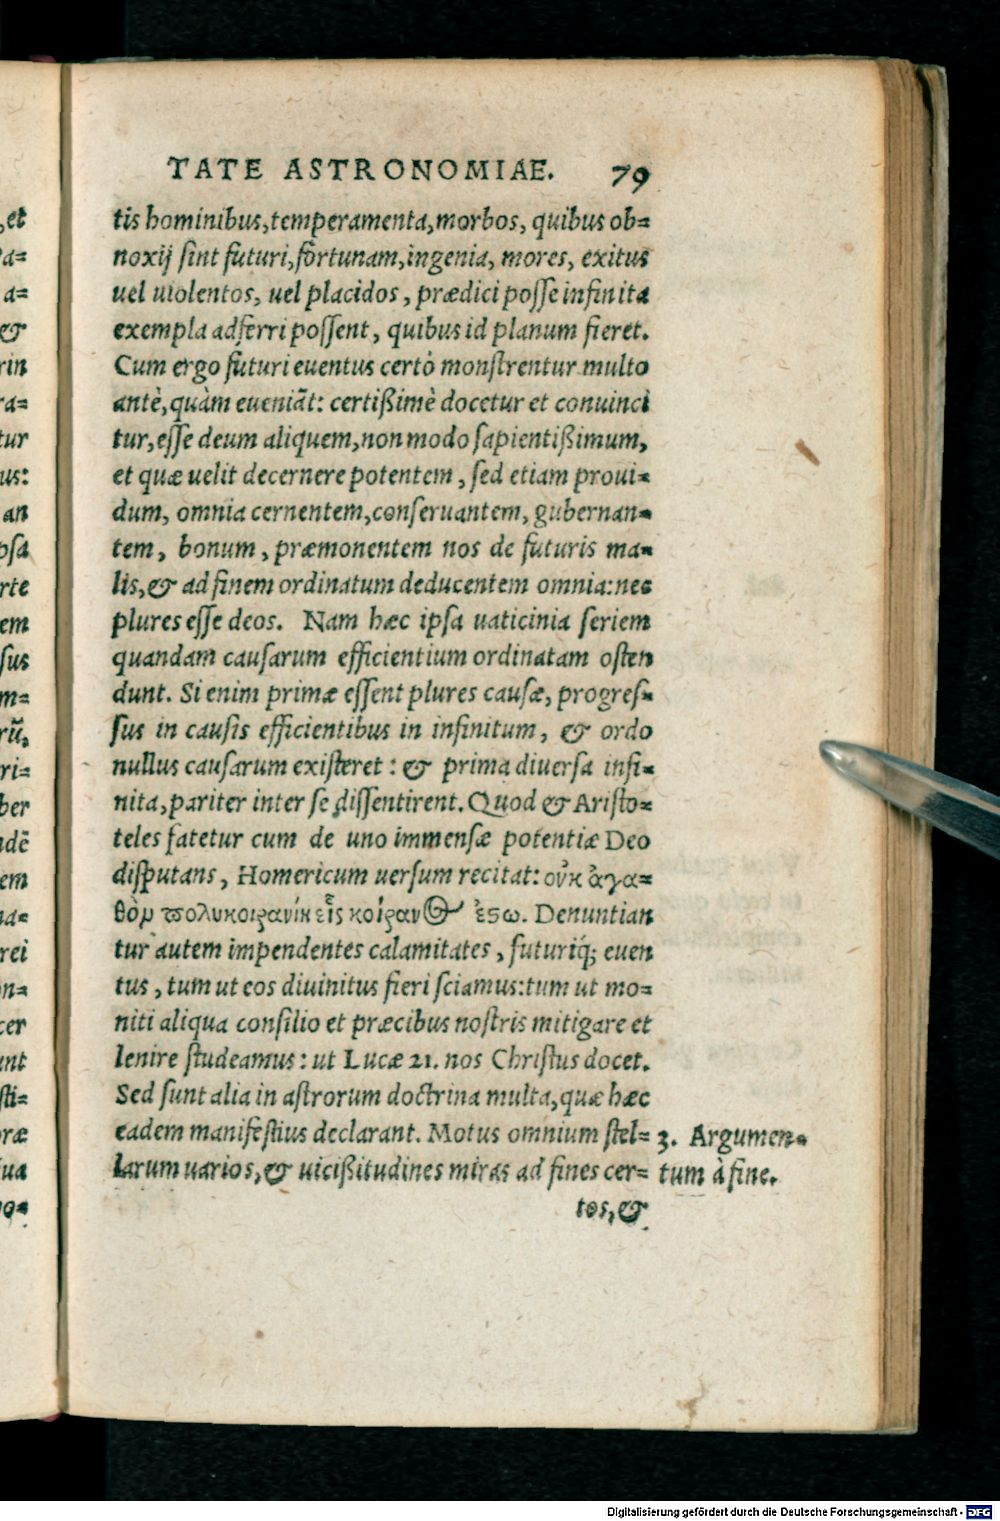 TATE ASTRONOMIAE. 79
tis hominibus, temperamenta, morbos, quibus ob=
noxij sint futuri, fortunam, ingenia, mores, exitus
uel uiolentos, uel placidos, prædici posse infinita
exempla adferri possent, quibus id planum fieret.
Cum ergo futuri euentus certò monstrentur multo
antè, quàm eueniãt: certißimè docetur et conuinci
tur, esse deum aliquem, non modo sapientißimum,
et quæ uelit decernere potentem, sed etiam proui=
dum, omnia cernentem, conseruantem, gubernan=
tem, bonum, præmonentem nos de futuris ma=
lis, & ad finem ordinatum deducentem omnia: nec
plures esse deos. Nam hæc ipsa uaticinia seriem
quandam causarum efficientium ordinatam osten
dunt. Si enim primæ essent plures causæ, progres=
sus in causis efficientibus in infinitum, & ordo
nullus causarum existeret: & prima diuersa infi=
nita, pariter inter se dissentirent. Quod & Aristo=
teles fatetur cum de uno immensæ potentiæ Deo
disputans, Homericum uersum recitat: οὐκ ἀγα=
θὸν πολυκοιρανίη εἷς κοίρανος ἔστω. Denuntian
tur autem impendentes calamitates, futuriq́; euen
tus, tum ut eos diuinitus fieri sciamus: tum ut mo=
niti aliqua consilio et præcibus nostris mitigare et
lenire studeamus: ut Lucæ 21. nos Christus docet.
Sed sunt alia in astrorum doctrina multa, quæ hæc
eadem manifestius declarant. Motus omnium stel=
larum uarios, & uicißitudines miras ad fines cer=
tos, &
3. Argumen=
tum à fine.
Digitalisierung gefördert durch die Deutsche Forschungsgemeinschaft - DFG